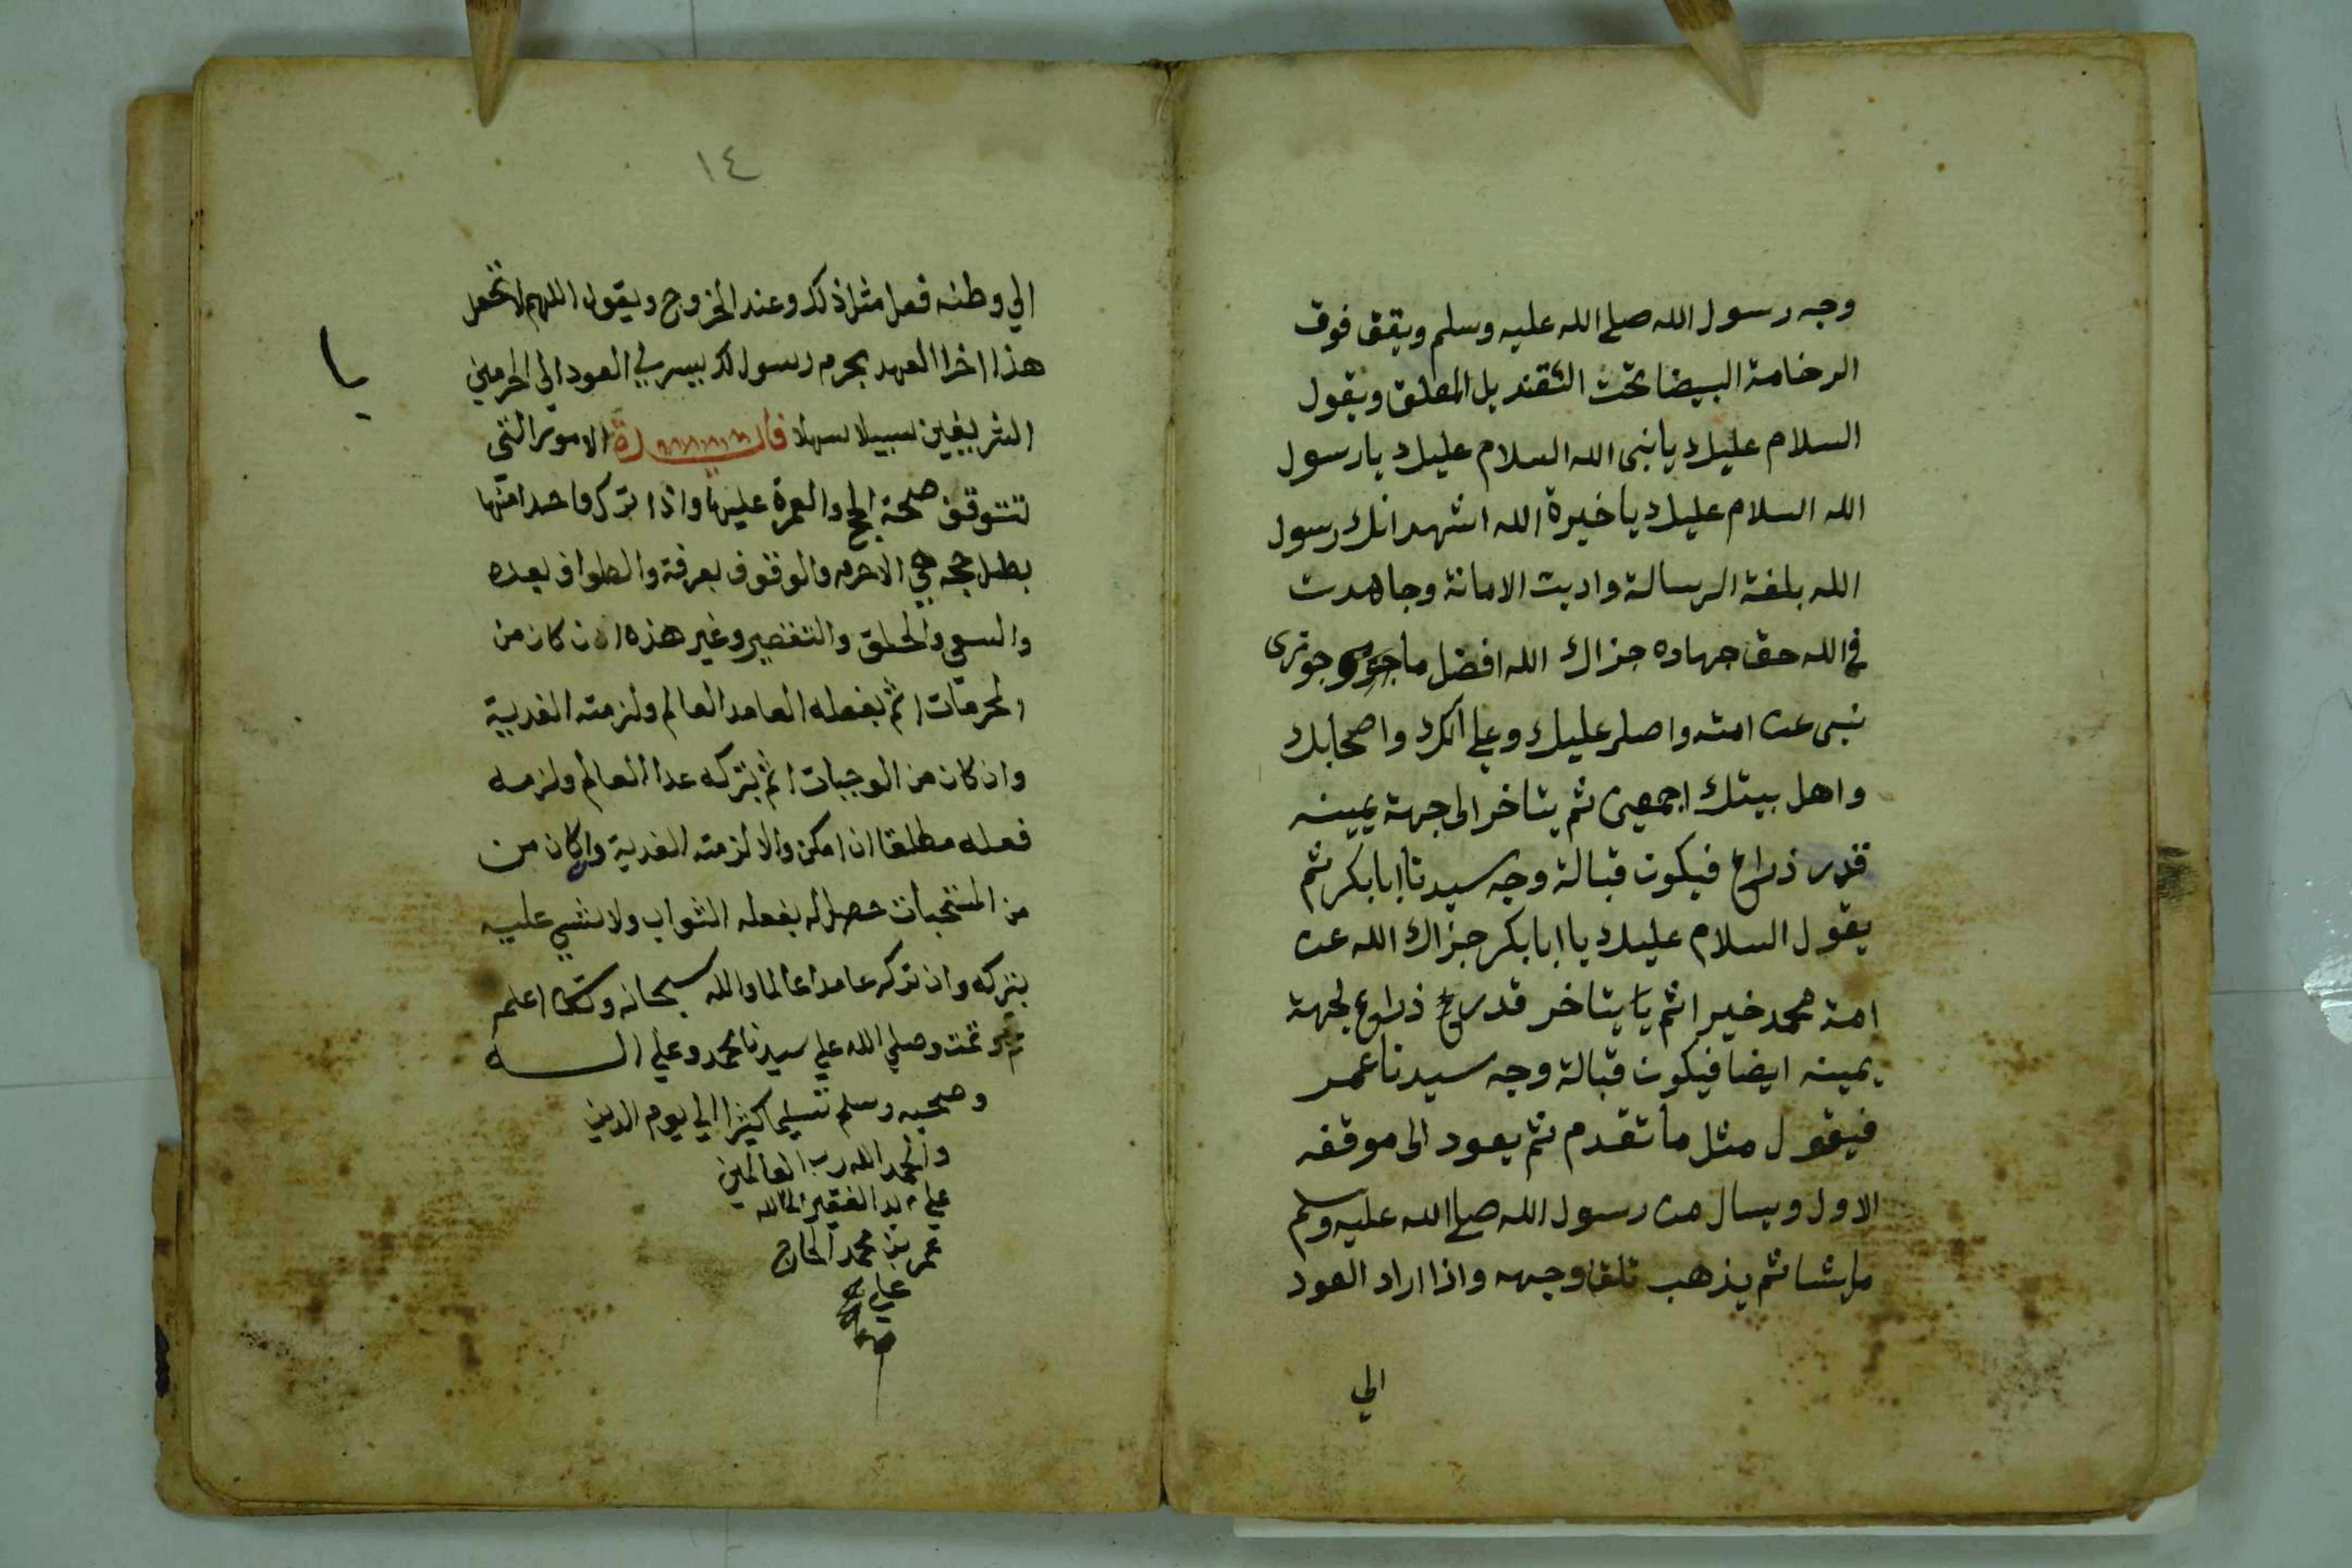 وجه رسول الله صلي الله عليه وسلم ويقف فوق
الرخامة البيضا تحت القنديل المعلق ويقول
السلام عليك يا نبي الله السلام عليك يا رسول
الله السلام عليك يا خيرة الله اشهد انك رسول
الله بلغة الرسالة واديت الامانة وجاهدت
في الله حق جهاده جزاك الله افضل ما جوزى
نبى عن امته واصلى عليك وعلي الك واصحابك
واهل بيتك اجمعين ثم يتاخر الى جهة يمينه
قدر ذراع فيكون قبالة وجه سيدنا ابابكر ثم
يقول السلام عليك يا ابابكر جزاك الله عن
امة محمد خيرا ثم يا يتاخر قدر ذراع لجهة
يمينه ايضا فيكون قبالة وجه سيدنا عمر
فيقول مثل ما تقدم ثم يعود الى موقفه
الاول ويسال من رسول الله صلي الله عليه وسلم
ما يشا ثم يذهب تلقا وجهه واذا اراد العود
الي
١٤
الي وطنه فعل مثل ذلك وعند الخروج ويقول اللهم لا تجعل
هذا اخر العهد بحرم رسولك يسر لي العود الي الحرمين
الشريفين سبيلا سهلا الامور التي
تتوقف صحة الحج والعمرة عليها واذا ترك واحدا منها
بطل حجه هي الاحرم والوقوف بعرفة والطواف بعده
والسعي والحلق والتقصير وغير هذه ان كان من
المحرمات اثم بفعله العامد العالم ولزمته الفدية
وان كان من الوجبات اثم بتركه عدا العالم ولزمه
فعله مطلقا ان امكن والا لزمته الفدية وان كان من
من المستحبات حصل له بفعله الثواب ولا شي عليه
بتركه وان تركه عامدا عالما والله سبحانه وتعالى اعلم
تمت وصلي الله علي سيدنا محمد وعلي اله
وصحبه وسلم تسليما كثيرا الي يوم الدين
والحمد الله رب العالمين
علي يد الفقير الى الله
عمر بن محمد الحاج
علي